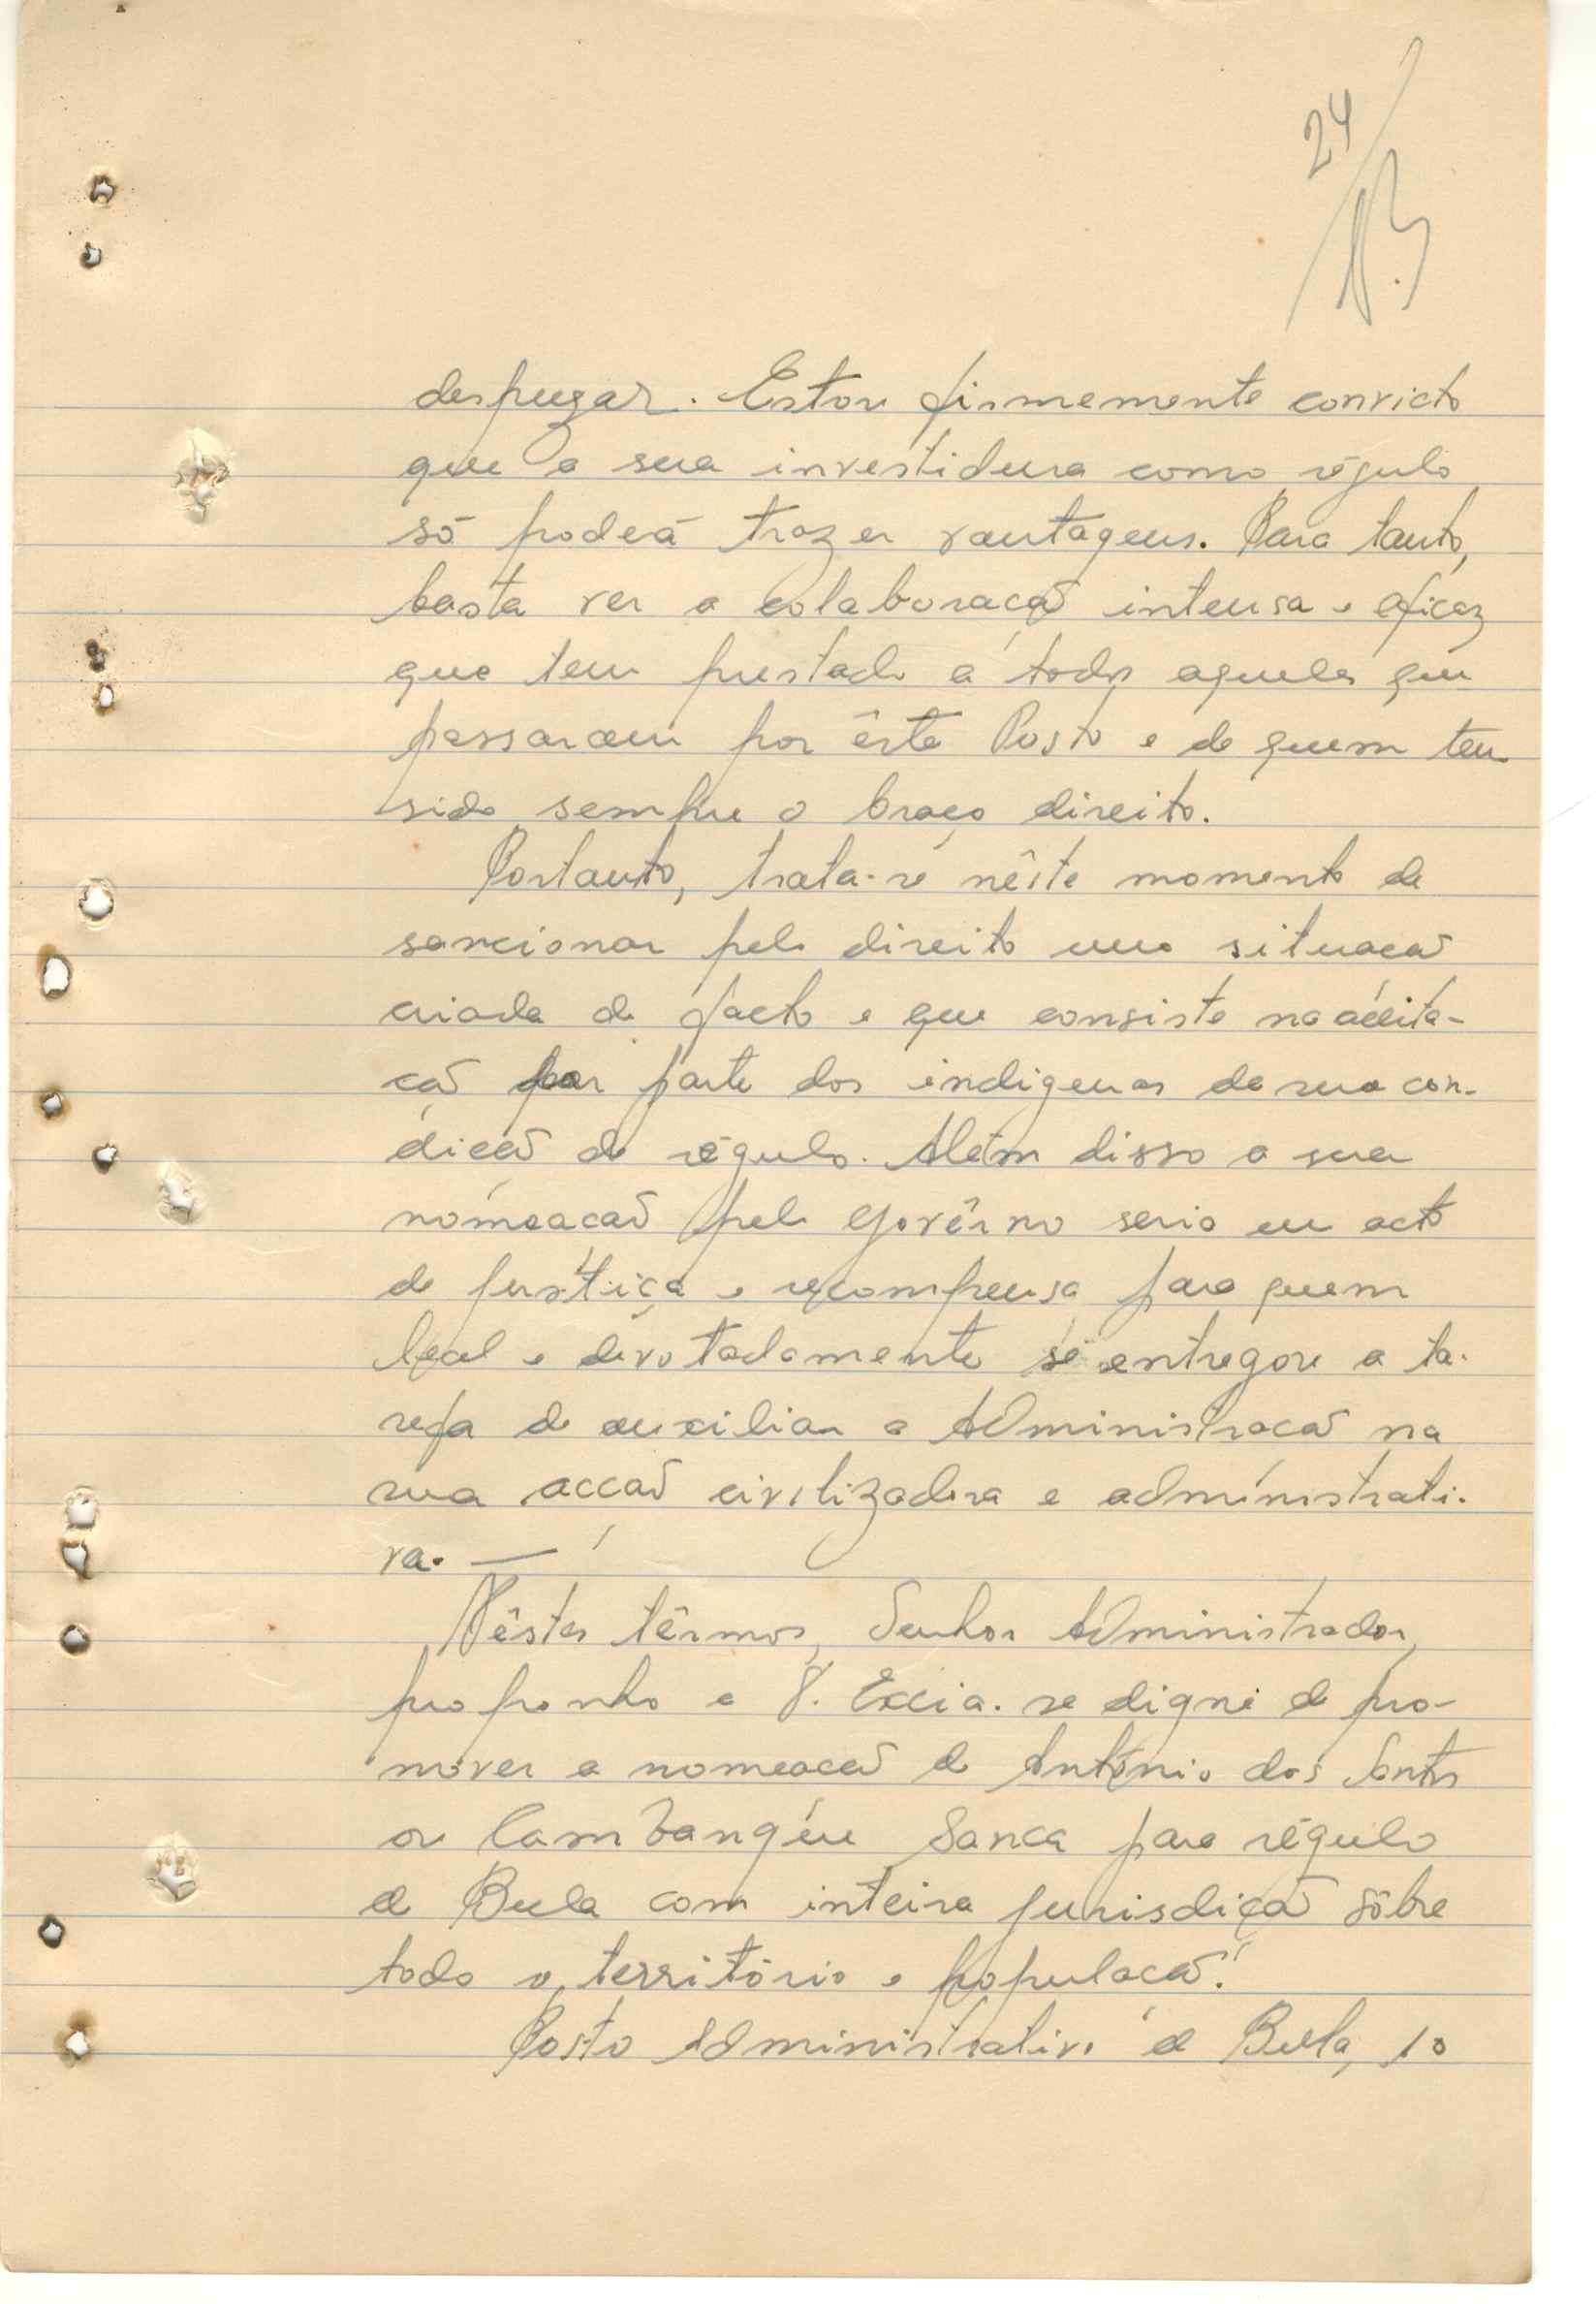 24
desprezar. Estou firmemente convicto
que a sua investidura como régulo
só poderá trazer vantagens. Para tanto,
basta ver a colaboração intensa e eficaz
que tem prestado a todos aqueles que
passaram por êste Posto e de quem tem
sido sempre o braço direito.
Portanto, trata-se nêste momento de
sancionar pelo direito uma situação
criada de facto e que consiste na aceita-
ção por parte dos indigenas da sua con-
dição de régulo. Além disso a sua
nomeação pelo Govêrno seria um acto
de justiça e recompensa para quem
leal e devotadamente se entregou a ta-
refa de auxiliar a Administração na
sua acção civilizadora e administrati-
va. —
Nêstes têrmos, Senhor Administrador,
proponho a V. Excia. se digne de pro-
mover a nomeação de António dos Santos
ou Cambanguéu Sanca para régulo
de Bula com inteira jurisdição sôbre
todo o território e população.
Posto Administrativo de Bula, 10